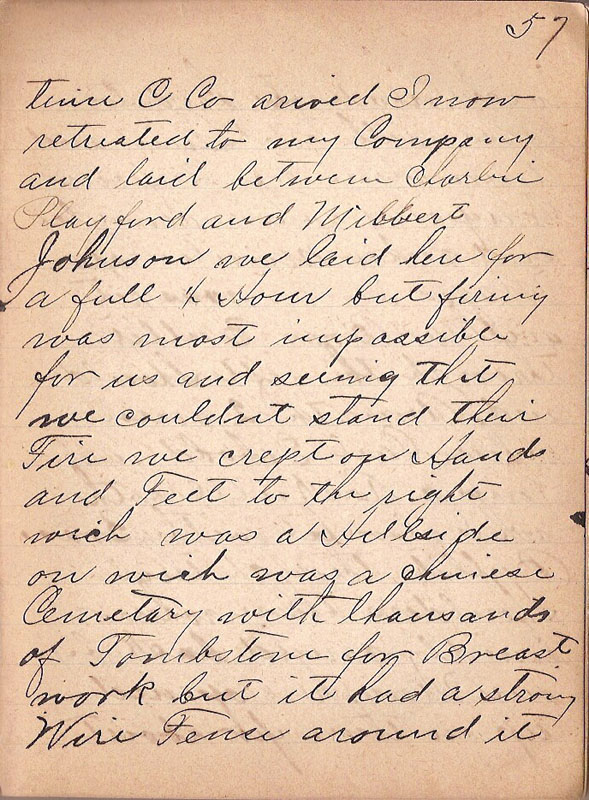 57
time C Co arived I now
retreated to my Company
and laid between Charlie
Playford and Milbert
Johnson we laid here for
a full ½ Hour but firing
was most impossible
for us and seeing that
we couldnt stand their
Fire we crept on Hands
and Feet to the right
wich was a Hillside
on wich was a chinese
Cemetary with thausands
of Tombstone for Breast
work but it had a strong
Wire Fense around it